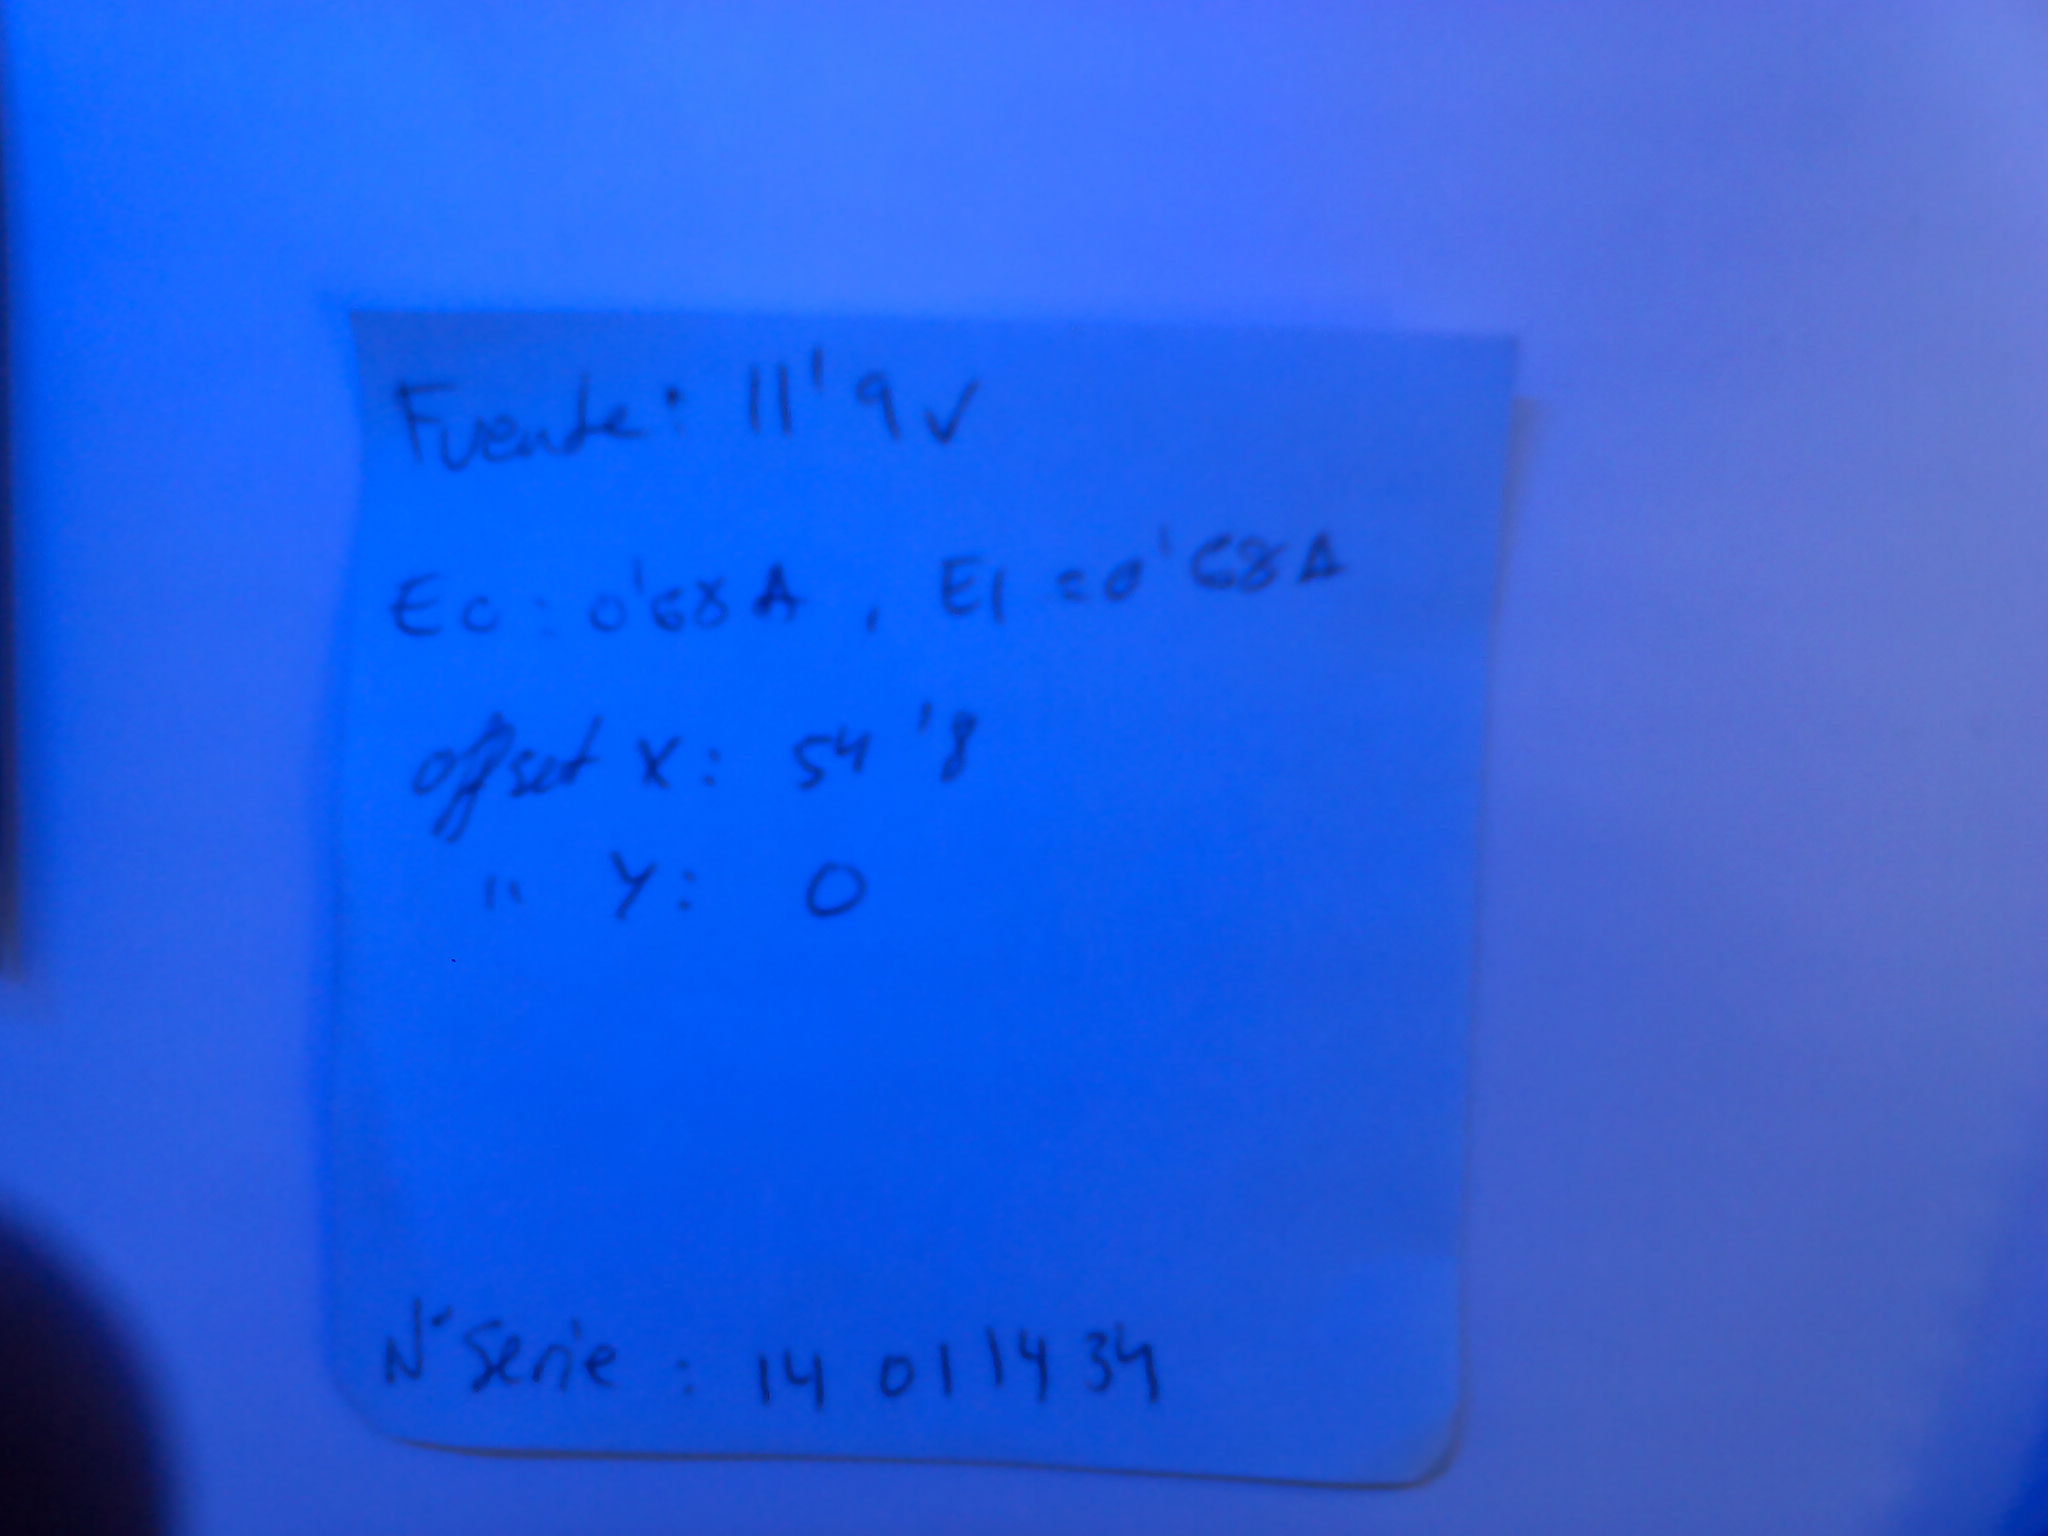 Fuente: 11'9 V
E0: 0'68 A, E1 = 0'68 A
offset X: 54'8
" Y: 0
Nº Serie: 14 011434